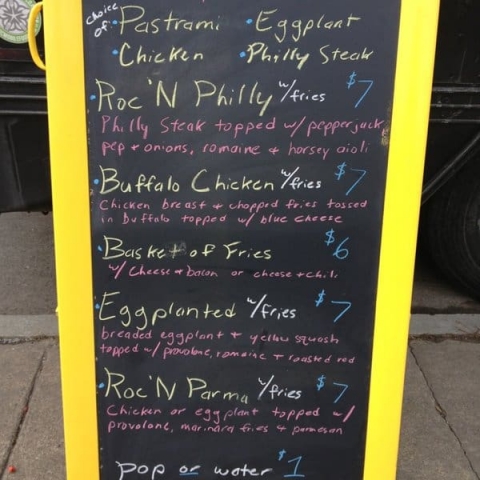 choice of: • Pastrami • Eggplant
• Chicken • Philly Steak
• Roc'N Philly w/fries $7
Philly Steak topped w/ pepperjack
pep + onions, romaine + horsey aioli
• Buffalo Chicken w/fries $7
Chicken breast + chopped fries tossed
in Buffalo topped w/ blue cheese
• Basket of Fries $6
w/ Cheese + bacon or cheese + chili
• Eggplanted w/fries $7
breaded eggplant + yellow squash
topped w/ provolone, romaine + roasted red
• Roc'N Parma w/fries $7
Chicken or eggplant topped w/
provolone, marinara fries + parmesan
Pop or water $1